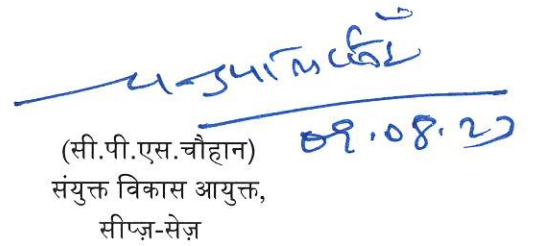 09.08.23
(सी.पी.एस.चौहान)
संयुक्त विकास आयुक्त,
सीप्ज़-सेज़